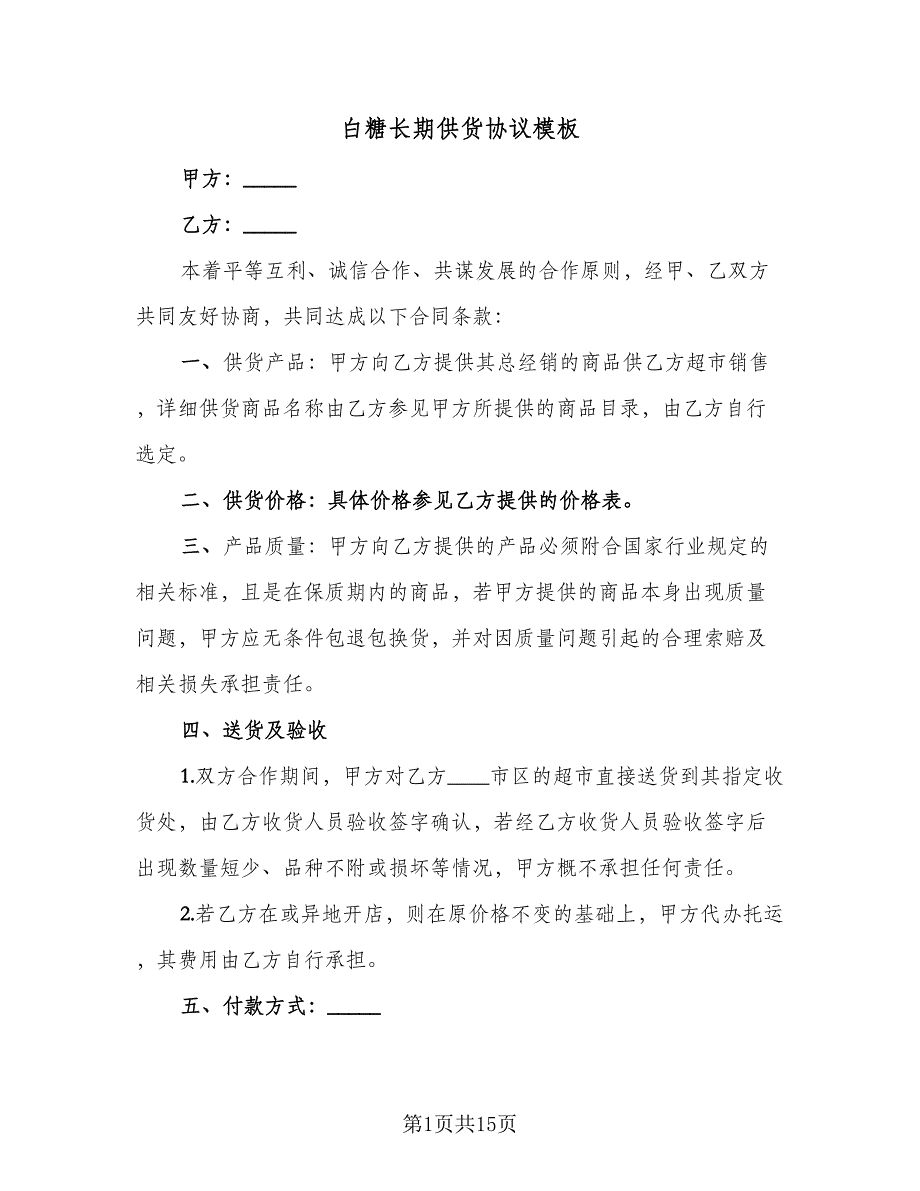 白糖长期供货协议模板
甲方：_____
乙方：_____
本着平等互利、诚信合作、共谋发展的合作原则，经甲、乙双方
共同友好协商，共同达成以下合同条款：
一、供货产品：甲方向乙方提供其总经销的商品供乙方超市销售
，详细供货商品名称由乙方参见甲方所提供的商品目录，由乙方自行
选定。
二、供货价格：具体价格参见乙方提供的价格表。
三、产品质量：甲方向乙方提供的产品必须附合国家行业规定的
相关标准，且是在保质期内的商品，若甲方提供的商品本身出现质量
问题，甲方应无条件包退包换货，并对因质量问题引起的合理索赔及
相关损失承担责任。
四、送货及验收
1.双方合作期间，甲方对乙方____市区的超市直接送货到其指定收
货处，由乙方收货人员验收签字确认，若经乙方收货人员验收签字后
出现数量短少、品种不附或损坏等情况，甲方概不承担任何责任。
2.若乙方在或异地开店，则在原价格不变的基础上，甲方代办托运
，其费用由乙方自行承担。
五、付款方式：_____
第1页共15页